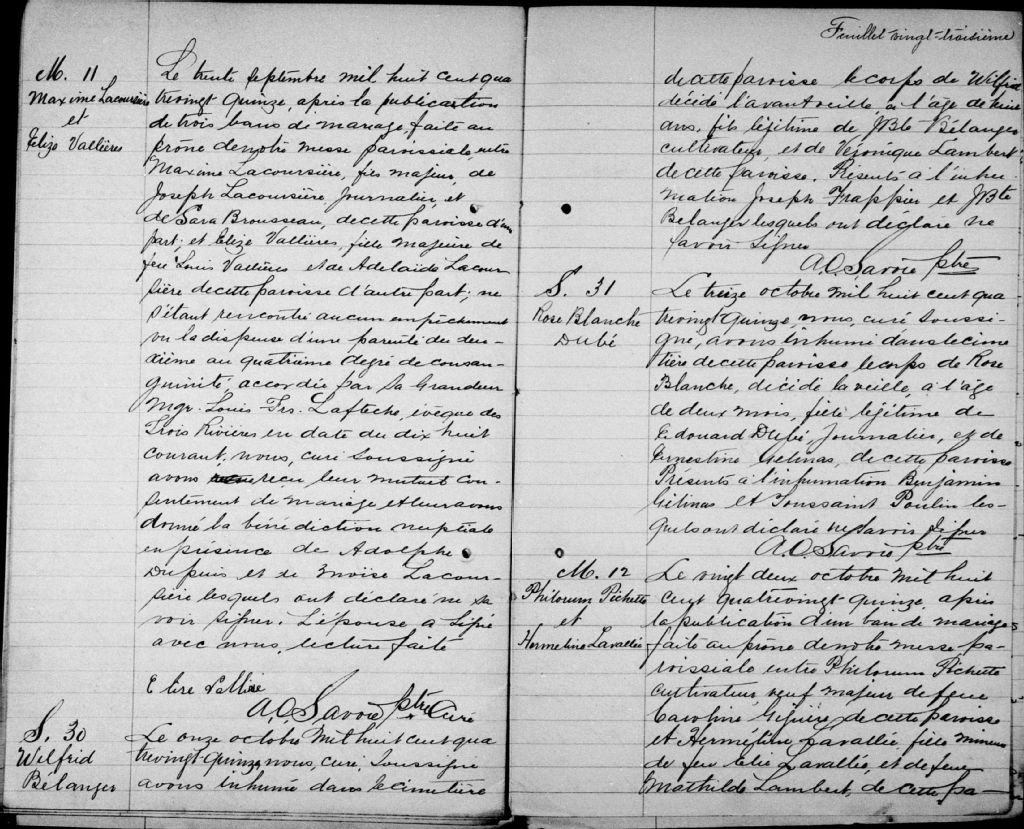 M. 11
Maxime Lacoursière
et
Elize Vallières
Le trente septembre mil huit cent qua
trevingt quinze, après la publication
de trois bans de mariage, faite au
prône de notre messe paroissiale, entre
Maxime Lacoursière, fils majeur, de
Joseph Lacoursière Journalier, et
de Sara Brousseau, de cette paroisse d'une
part; et Elize Vallières, fille majeure de
feu Louis Vallières et de Adelaïde Lacour
sière de cette paroisse d'autre part; ne
s'étant rencontré aucun empêchement
vu la dispense d'une parenté du deu-
xième au quatrième degré de consan-
guinité, accordée par Sa Grandeur
Mgr. Louis Frs. Laflèche, évêque des
Trois Rivières en date du dix huit
courant, nous, curé soussigné
avons reçu leur mutuel con-
sentement de mariage et leur avons
donné la bénédiction nuptiale
en présence de Adolphe
Dupuis et de Moïse Lacour-
sière lesquels ont déclaré ne sa
voir signer. L'épouse a signé
avec nous, lecture faite
Elize Vallière
A.O. Savoie ptre Curé
S. 30
Wilfrid
Bélanger
Le onze octobre mil huit cent qua
trevingt quinze nous, curé, soussigné
avons inhumé dans le cimetière
Feuillet vingt-troisième
de cette paroisse le corps de Wilfrid
décédé l'avant veille à l'âge de
ans, fils légitime de JBte Bélanger
cultivateur, et de Véronique Lambert
de cette paroisse. Présents à l'inhu-
mation Joseph Frappier et JBte
Bélanger lesquels ont déclaré ne
savoir signer
A.O. Savoie ptre
S. 31
Rose Blanche
Dubé
Le treize octobre mil huit cent qua
trevingt quinze, nous, curé soussi-
gné, avons inhumé dans le cime
tière de cette paroisse le corps de Rose
Blanche, décédé la veille, à l'âge
de deux mois, fille légitime de
Edouard Dubé, Journalier, et de
Ernestine Gelinas, de cette paroisse
Présents à l'inhumation Benjamin
Gélinas et Toussaint Poulin les-
quels ont déclaré ne savoir signer
A.O. Savoie ptre
M. 12
Philorum Pichette
et
Hermeline Lavallée
Le vingt deux octobre mil huit
cent quatrevingt quinze, après
la publication d'un ban de mariage
faite au prône de notre messe pa-
roissiale entre Philorum Pichette
cultivateur, veuf majeur de feue
Caroline de cette paroisse
et Herméline Lavallée, fille mineure
de feu Elie Lavallée, et de feue
Mathilde Lambert, de cette pa-